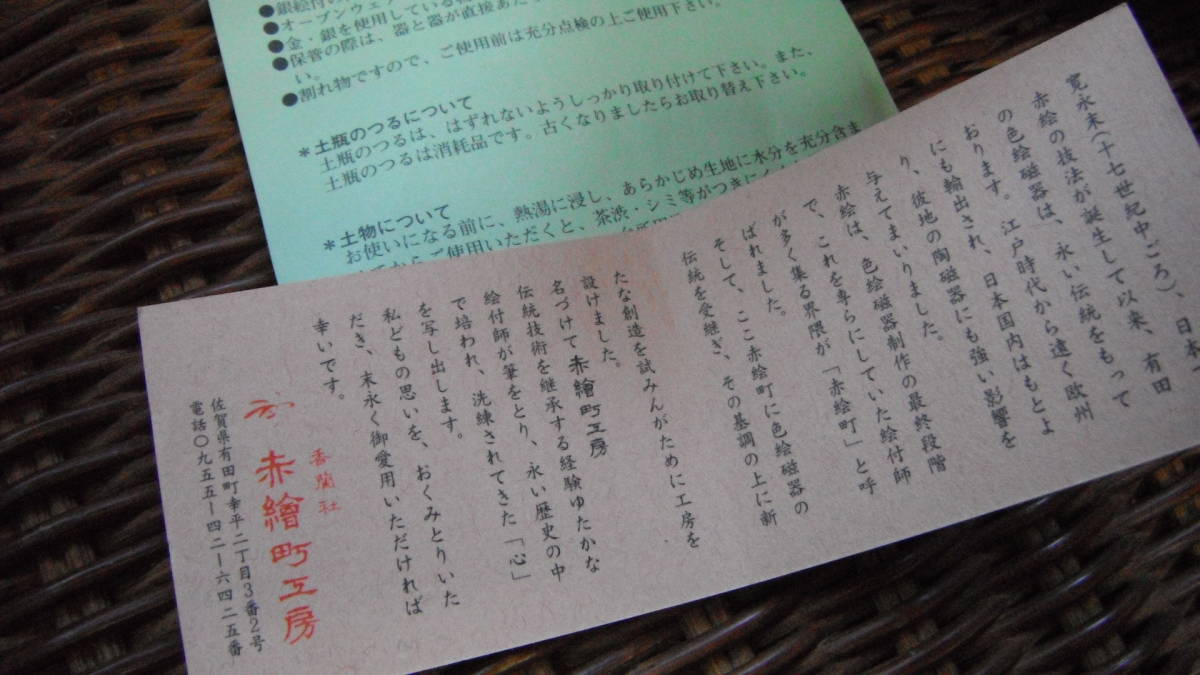 ●銀絵付の
●オーブンウェア
●金・銀を使用している
●保管の際は、器と器が直接あた
い。
●割れ物ですので、ご使用前は充分点検の上ご使用下さい。
＊土瓶のつるについて
土瓶のつるは、はずれないようしっかり取り付けて下さい。また、
土瓶のつるは消耗品です。古くなりましたらお取り替え下さい。
＊土物について
お使いになる前に、熱湯に浸し、あらかじめ生地に水分を充分含ま
てからご使用いただくと、茶渋・シミ等がつきにく
寛永末(十七世紀中ごろ)、日本
赤絵の技法が誕生して以来、有田
の色絵磁器は、永い伝統をもって
おります。江戸時代から遠く欧州
にも輸出され、日本国内はもとよ
り、彼地の陶磁器にも強い影響を
与えてまいりました。
赤絵は、色絵磁器制作の最終段階
で、これを専らにしていた絵付師
が多く集る界隈が「赤絵町」と呼
ばれました。
そして、ここ赤絵町に色絵磁器の
伝統を受継ぎ、その基調の上に新
たな創造を試みんがために工房を
設けました。
名づけて 赤繪町工房
伝統技術を継承する経験ゆたかな
絵付師が筆をとり、永い歴史の中
で培われ、洗練されてきた「心」
を写し出します。
私どもの思いを、おくみとりいた
だき、末永く御愛用いただければ
幸いです。
香蘭社
赤繪町工房
佐賀県有田町幸平二丁目3番2号
電話〇九五五ー四二ー六四二五番